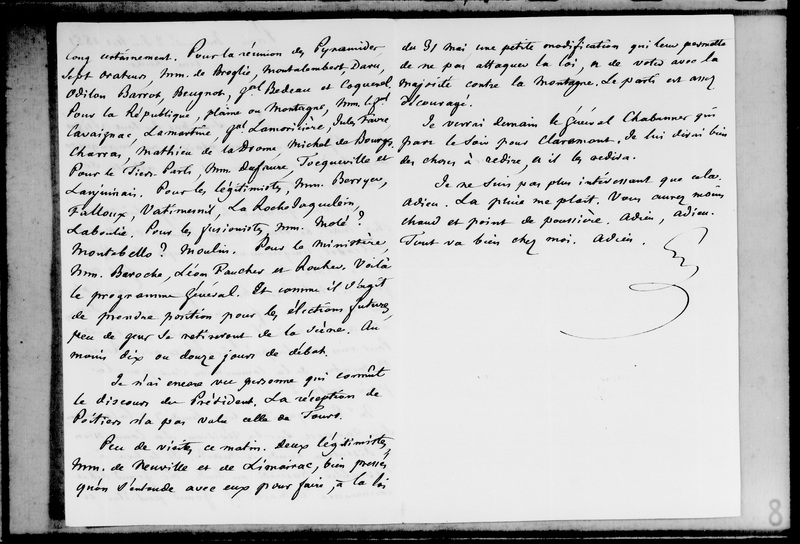 long certainement. Pour la réunion des Pyramides
sept orateurs, MM. de Broglie, Montalembert, Daru,
Odilon Barrot, Beugnot, gal Bedeau et Coquerel.
Pour la République, plaine ou Montagne, MM. le gal
Cavaignac, Lamartine, gal Lamoricière, Jules Favre
Charras, Mathieu de la Drome, Michel de Bourges.
Pour le Tiers Parti, MM. Dufaure, Tocqueville et
Lanjuinais. Pour les légitimistes, MM. Berryer,
Falloux, Vatimesnil, La Rochejaquelein,
Laboulie. Pour les fusionistes, MM. Molé ?
Montebello ? Moulin. Pour le ministère,
MM. Baroche, Léon Faucher et Rouher. Voilà
le programme général. Et comme il s'agit
de prendre position pour les élections futures,
peu de gens se retireront de la scène. Au
moins dix ou douze jours de débat.
Je n'ai encore vu personne qui connût
le discours du Président. La réception de
Poitiers n'a pas valu celle de Tours.
Peu de visites ce matin. Deux légitimistes,
MM. de Neuville et de Limairac, bien pressés
qu'on s'entende avec eux pour faire, à la loi
du 31 mai une petite modification qui leur permette
de ne pas attaquer la loi, et de voter avec la
majorité contre la montagne. Le parti est assez
découragé.
Je verrai demain le général Chabannes qui
part le soir pour Claremont. Je lui dirai bien
des choses à redire, et il les redira.
Je ne suis pas plus intéressant que cela.
Adieu. La pluie me plait. Vous aurez moins
chaud et point de poussière. Adieu, adieu.
Tout va bien chez moi. Adieu.
8